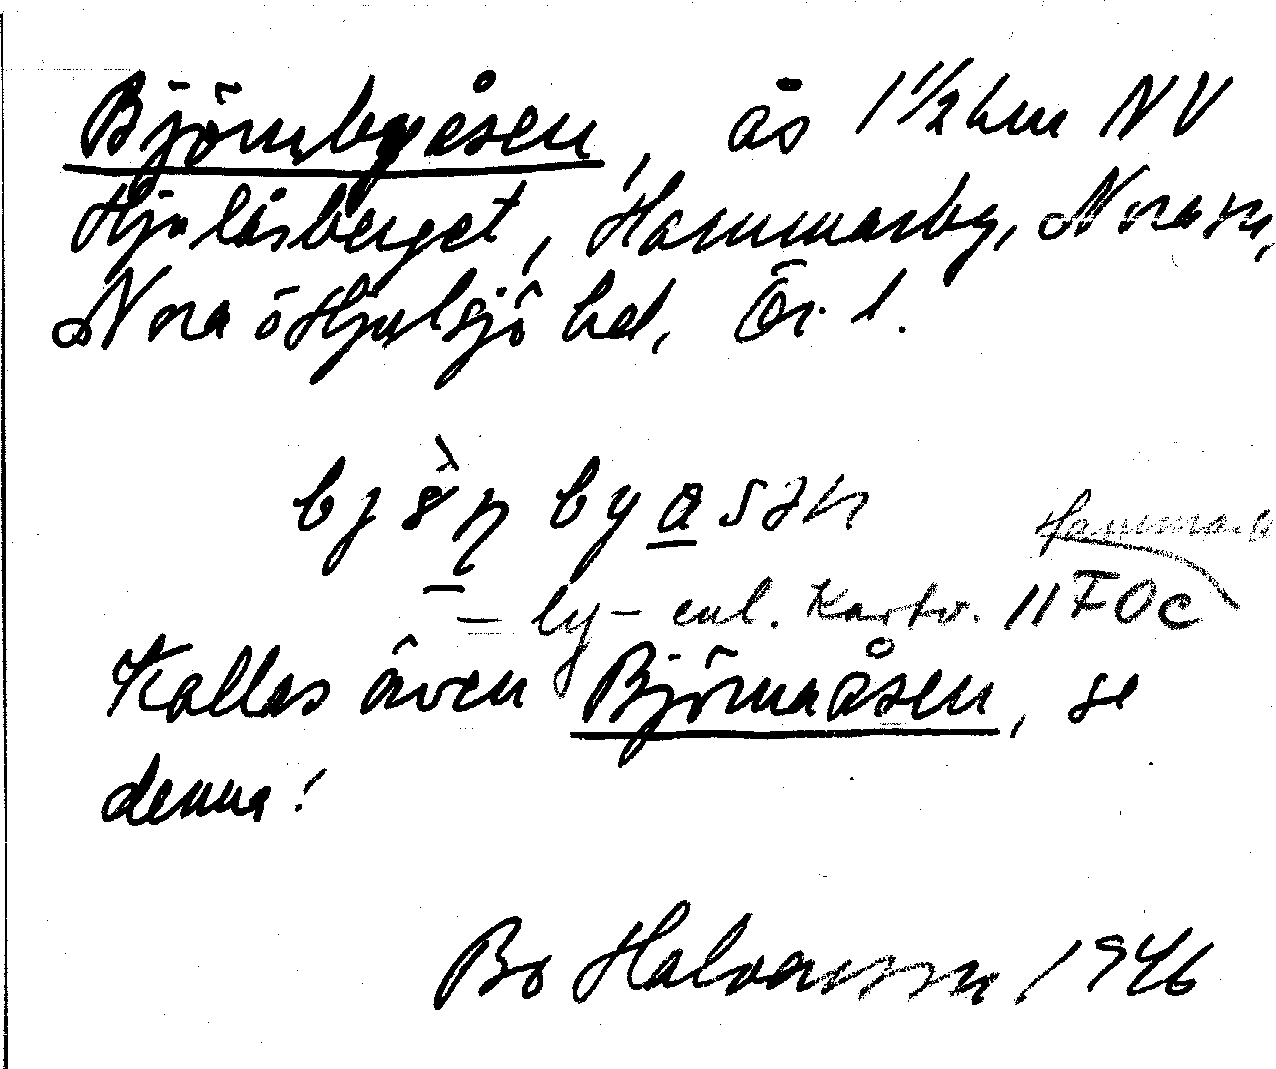 Björnbyåsen, ås 1 1/2 km NV
Hjulåsberget, Hammarby, Nora sn,
Nora ö Hjulsjö hd, Ör. l.
— by – enl. Kartv. 11F0c
Kallas även Björnaåsen, se
denna!
Bo Halvarsson 1946